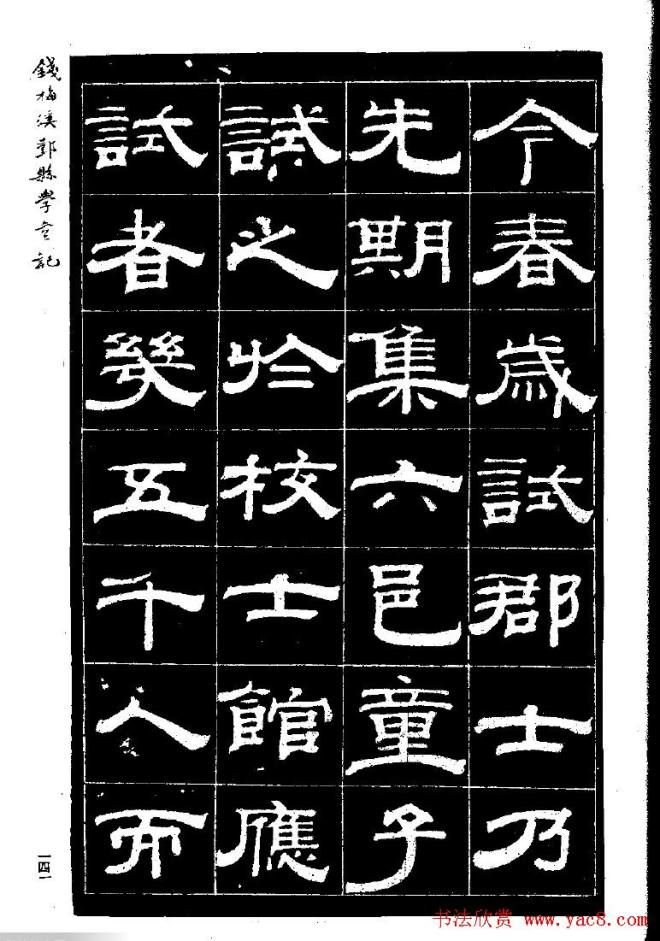 今春歲試郡士乃
先期集六邑童子
試之於校士館應
試者幾五千人而
錢梅溪鄞縣學重記
一四一
书法欣赏 www.yac8.com